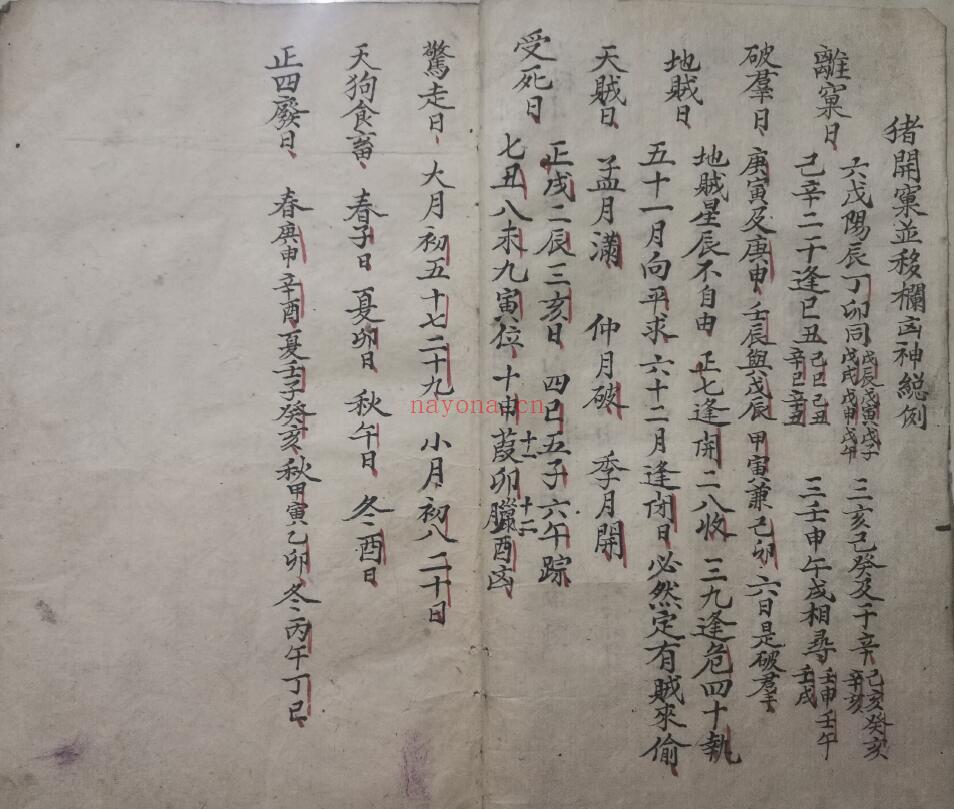 猪開窠並移欄凶神総例
離窠日 六戊陽辰丁卯同 戊辰戊寅戊子 戊戌戊申戊午 三亥己癸及干辛 己亥癸亥 辛亥
己辛二干逢巳丑 己巳己丑 辛巳辛丑 三壬申午戌相尋 壬申壬午 壬戌
破羣日 庚寅及庚申 壬辰與戊辰 甲寅兼己卯 六日是破羣
地賊日 地賊星辰不自由 正七逢開二八收 三九逢危四十執
五十一月向平求 六十二月逢闭日 必然定有賊來偷
天賊日 孟月滿 仲月破 季月開
受死日 正戌二辰三亥日 四巳五子六午踪
七丑八未九寅位 十申葭卯臘酉凶 十一 十二
驚走日 大月初五十七二十九 小月初八二十日
天狗食畜 春子日 夏卯日 秋午日 冬酉日
正四廢日 春庚申辛酉夏壬子癸亥秋甲寅乙卯冬丙午丁巳
nayona.cn